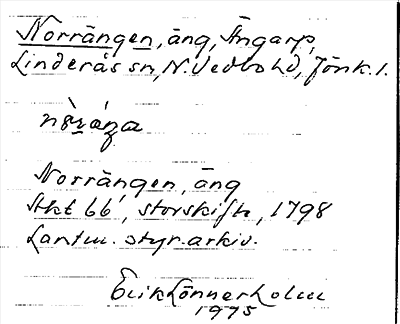 Norrängen, äng, Ängarp,
Linderås sn, N. Vedbo hd, Jönk. l.
Norrängen, äng
Akt 66, storskifte, 1798
Lantm. styr. arkiv.
Erik Lönnerholm
1975